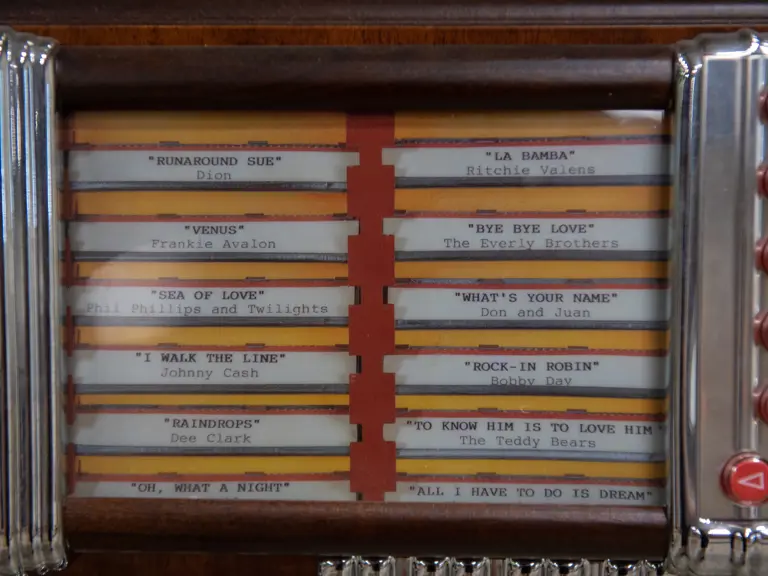 "RUNAROUND SUE"
Dion
"VENUS"
Frankie Avalon
"SEA OF LOVE"
Phil Phillips and Twilights
"I WALK THE LINE"
Johnny Cash
"RAINDROPS"
Dee Clark
"OH, WHAT A NIGHT"
"LA BAMBA"
Ritchie Valens
"BYE BYE LOVE"
The Everly Brothers
"WHAT'S YOUR NAME"
Don and Juan
"ROCK-IN ROBIN"
Bobby Day
"TO KNOW HIM IS TO LOVE HIM"
The Teddy Bears
"ALL I HAVE TO DO IS DREAM"